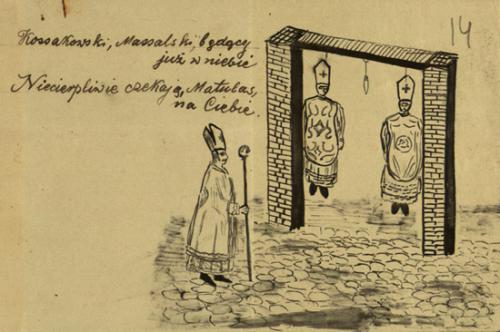 Kossakowski, Massalski, będący
już w niebie
Niecierpliwie czekają, Matulas,
na Ciebie.
14